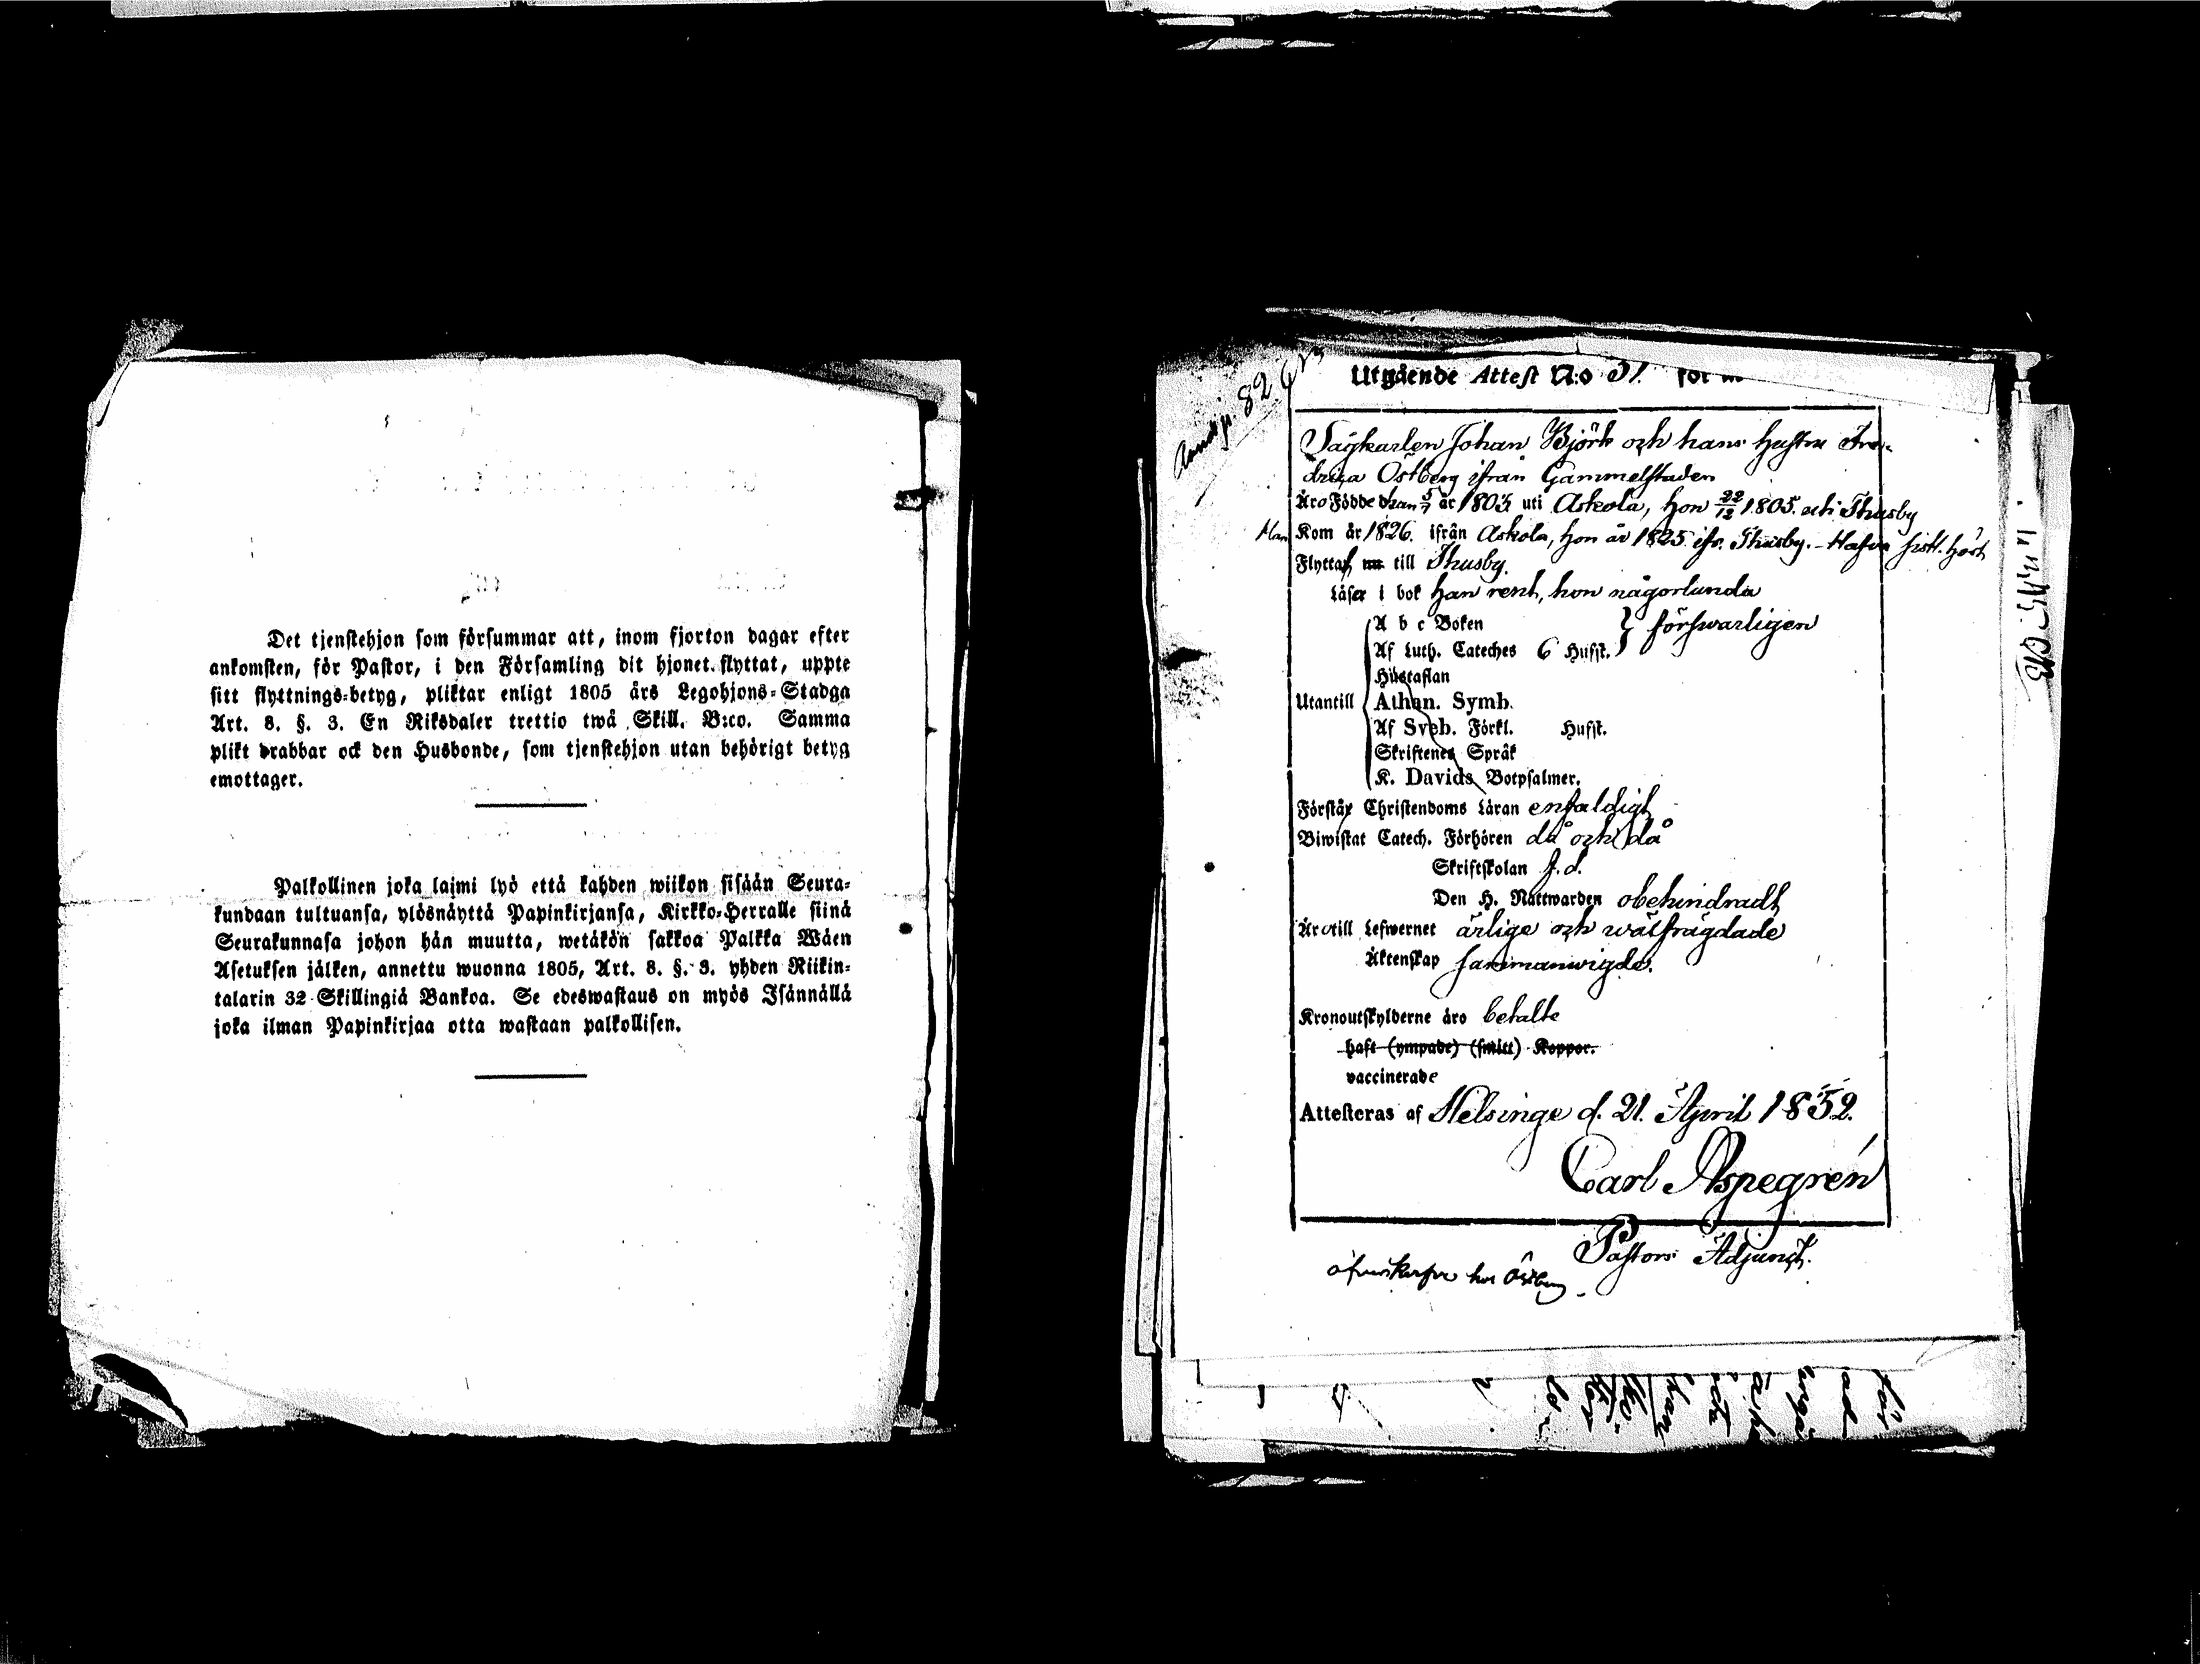 Det tjenstehjon som försummar att, inom fjorton dagar efter
ankomsten, för Pastor, i den Församling dit hjonet flyttat, uppte
sitt flyttnings-betyg, pliktar enligt 1805 års Legohjons-Stadga
Art. 8. §. 3. En Riksdaler trettio twå Skill. B:co. Samma
plikt drabbar ock den Husbonde, som tjenstehjon utan behörigt betyg
emottager.
Palkollinen joka laimi lyö että kahden wiikon sisään Seura-
kundaan tultuansa, ylösnäyttä Papinkirjansa, Kirkko-Herralle siinä
Seurakunnasa johon hän muutta, wetäkön sakkoa Palkka Wäen
Asetuksen jälken, annettu wuonna 1805, Art. 8. §. 3. yhden Riikin-
talarin 32 Skillingiä Bankoa. Se edeswastaus on myös Isännällä
joka ilman Papinkirjaa otta wastaan palkollisen.
82
Utgående Attest N:o 51. för
Sågkarlen Johan Björk och hans hustru Fre-
drica Östberg ifrån Gammelstaden
Äro Födde han 5/7 år 1803 uti Askola, hon 22/12 1805. uti Thusby
Han Kom år 1826. ifrån Askola, hon år 1825 ifr. Thusby. - Hafva sist. höst
Flyttat nu till Thusby.
Läser i bok han rent, hon någorlunda
A b c Boken } försvarligen
Af Luth. Cateches 6 Hufst.
Hustaflan
Utantill Athan. Symb.
Af Sveb. Förkl. Hufst.
Skriftenes Språk
K. Davids Botpsalmer.
Förstår Christendoms Läran enfaldigt
Biwistat Catech. Förhören då och då
Skriftskolan f. d.
Den H. Nattwarden obehindradt
Äro till Lefwernet ärlige och wälfrägdade
Äktenskap sammanvigde.
Kronoutskylderne äro betalte
haft (ympade) (smitt) Koppor.
vaccinerade
Attesteras af Helsinge d. 21. April 1852.
Carl Aspegrén
Pastors Adjunct.
hos Östberg